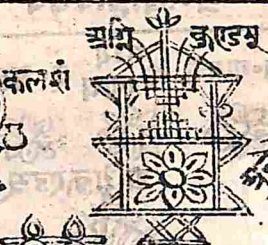 अग्नि कुण्डम्
कलशं